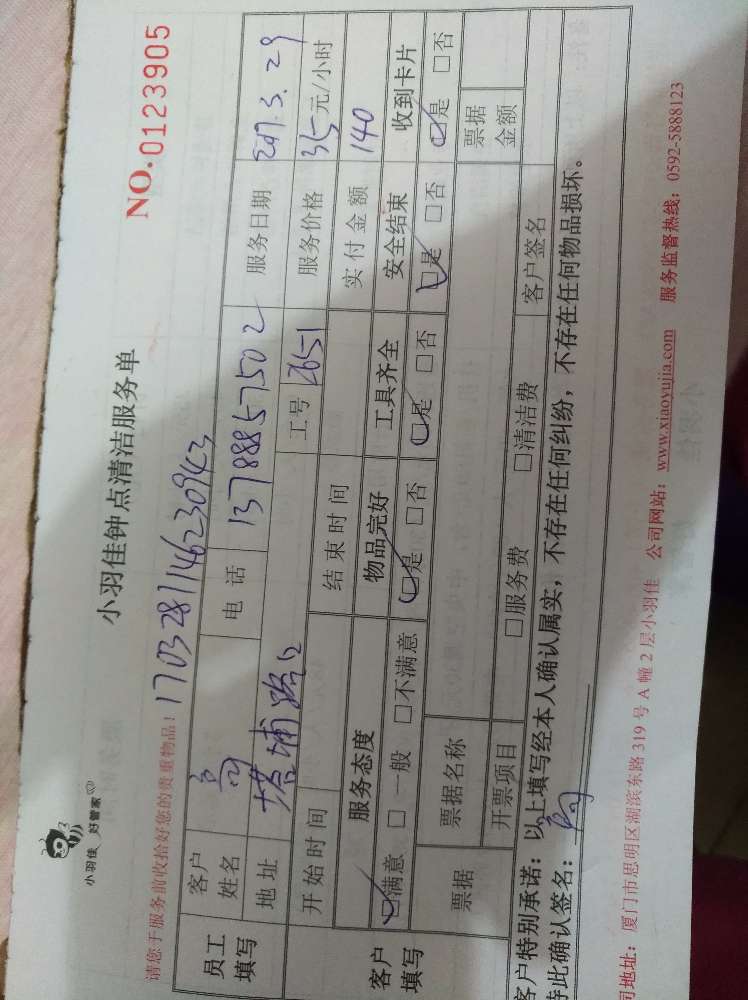 小羽佳 好管家
小羽佳钟点清洁服务单
NO.0123905
请您于服务前收拾好您的贵重物品! 1703281146230943
员工填写 客户姓名 高 电话 13788857502 服务日期 2017.3.29
地址 塔埔路 工号 2651 服务价格 35元/小时
开始时间 结束时间 实付金额 140
客户填写 服务态度 物品完好 工具齐全 安全结束 收到卡片
☑满意 □一般 □不满意 ☑是 □否 ☑是 □否 ☑是 □否 ☑是 □否
票据 票据名称 票据金额
开票项目 □服务费 □清洁费 客户签名
客户特别承诺:以上填写经本人确认属实,不存在任何纠纷,不存在任何物品损坏。
特此确认签名:
司地址:厦门市思明区湖滨东路319号A幢2层小羽佳 公司网站:www.xiaoyujia.com 服务监督热线:0592-5888123